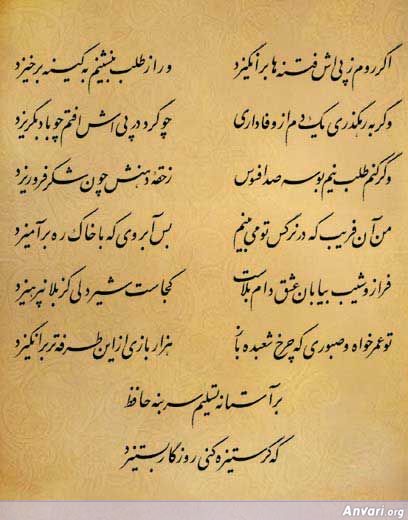 اگر روم ز پی اش فتنه ها برانگیزد ور از طلب بنشینم به کینه برخیزد
وگر به رهگذری یک دم از وفاداری چو گرد در پی اش افتم چو باد بگریزد
وگر کنم طلب نیم بوسه صد افسوس ز حقه دهنش چون شکر فرو ریزد
من آن فریب که در نرگس تو می بینم بس آبروی که با خاک ره برآمیزد
فراز و شیب بیابان عشق دام بلاست کجاست شیردلی کز بلا نپرهیزد
تو عمر خواه و صبوری که چرخ شعبده باز هزار بازی از این طرفه تر برانگیزد
بر آستانه تسلیم سر بنه حافظ
که گر ستیزه کنی روزگار بستیزد
Anvari.org